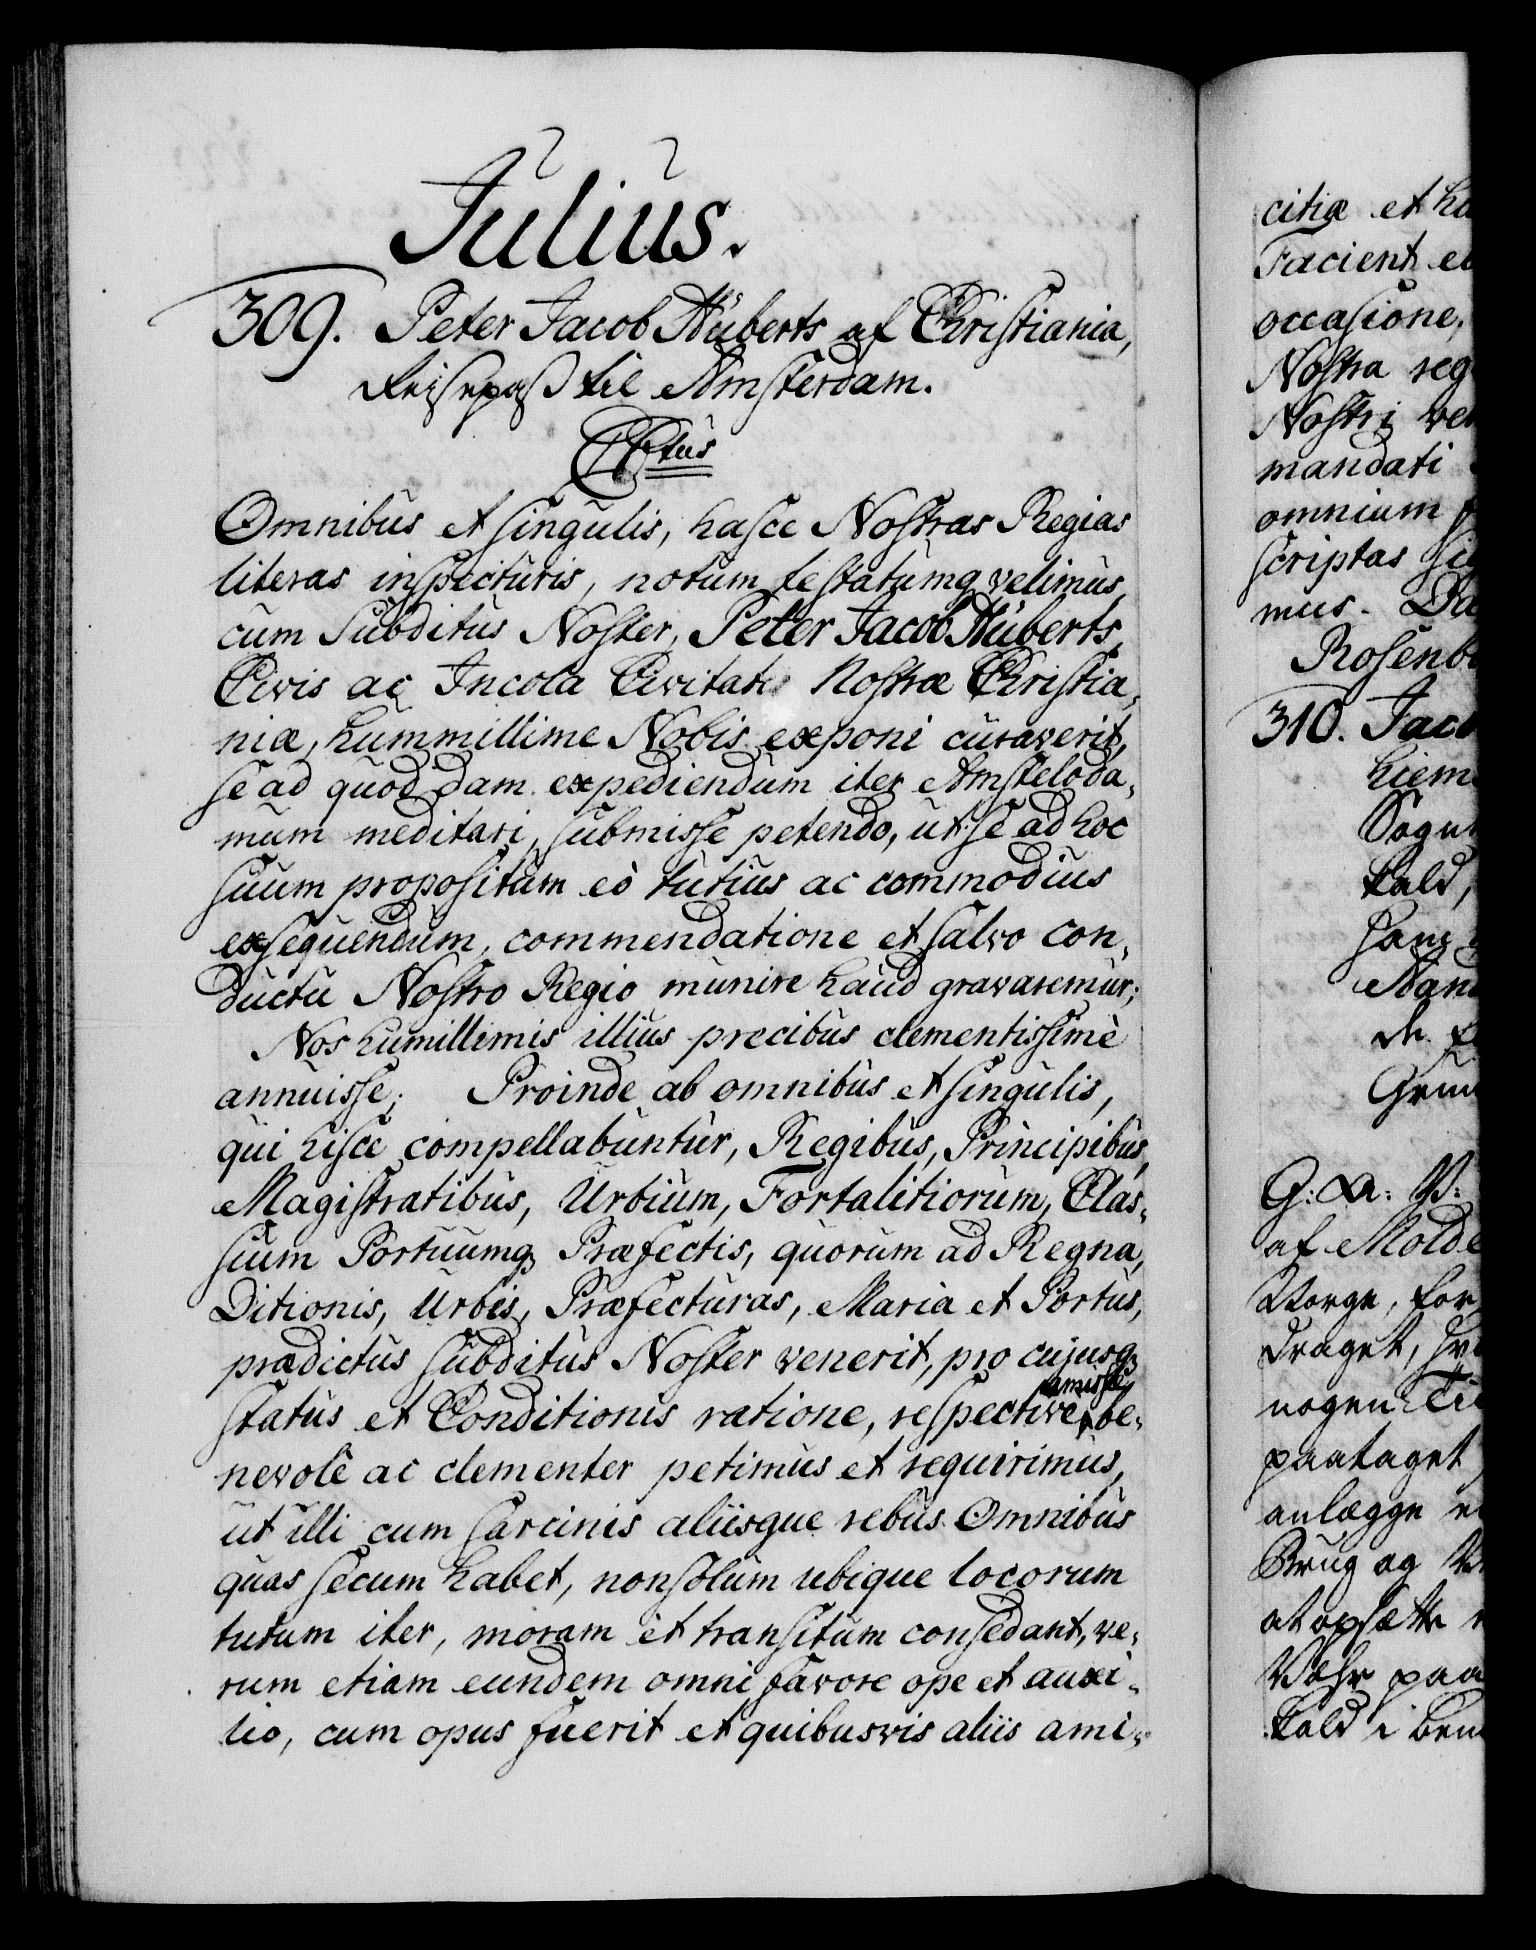 Julius.
309. Peter Jacob Hüberts af Christiania,
Reisepass til Amsterdam.
CCtus
Omnibus et singulis, hasce Nostras Regias
literas inspecturis, notum testatumq velimus,
cum Subditus Noster, Peter Jacob Hüberts,
Civis ac Incola Civitatis Nostræ Christia,
niæ, hummillime Nobis exponi curaverit,
se ad quoddam expediendum iter Amsteloda,
mum meditari, submisse petendo, ut se ad hoc
suum propositum eò tutius ac commodius
exsequendum, commendatione et salvo con,
ductu Nostro Regio munire haud gravaremur;
Nos humillimis illius precibus clementissimè
annuisse; Proinde ab omnibus et singulis,
qui hisce compellabuntur, Regibus, Principibus,
Magistratibus, Urbium, Fortalitiorum, Clas,
sium Portuumq Præfectis, quorum ad Regna,
Ditionis, Urbis, Præfecturas, Maria et Portus,
prædictus subditus Noster venerit, pro cujusq
status et Conditionis ratione, respective amisse, be,
nevolê ac clementer petimus et requirimus,
ut illi cum sarcinis aliisque rebus Omnibus
quas secum habet, non solum ubique locorum
tutum iter, moram et transitum consedant, ve,
rum etiam eundem omni favore ope et auxi,
lio, cum opus fuerit et quibusvis aliis ami,
citiæ et
Facient
occasione,
Nostra
Nostri
mandati
omnium
scriptas
mus.
310.
G: A: V:
af Molde
Norge, for
draget,
nogen
paataget
anlægge
Brug og
at opsætte
kald i